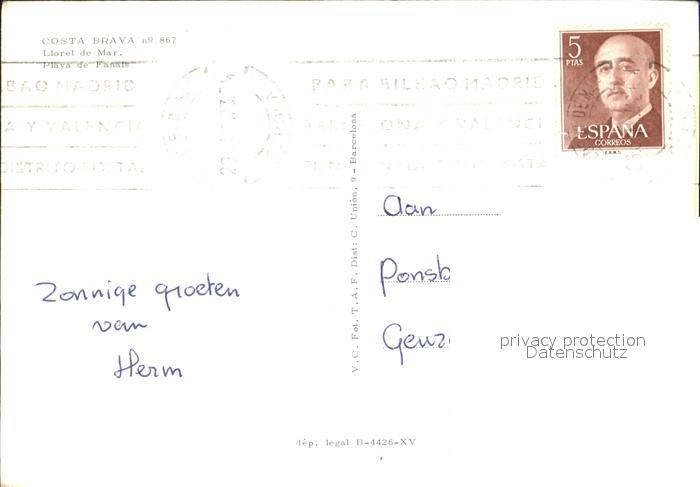 COSTA BRAVA nº 867
Lloret de Mar.
Playa de Fanals
BAO MADRID
A Y VALENCIA
DISTRITO POSTAL
PARA BILBAO MADRID
BARCELONA Y VALENCI
5
PTAS
ESPAÑA
CORREOS
V. C. Fot. T. A. F. Dist: C. Unión, 9 - Barcelona
Aan
Zonnige groeten
van
Herm
privacy protection
Datenschutz
dép. legal B-4426-XV